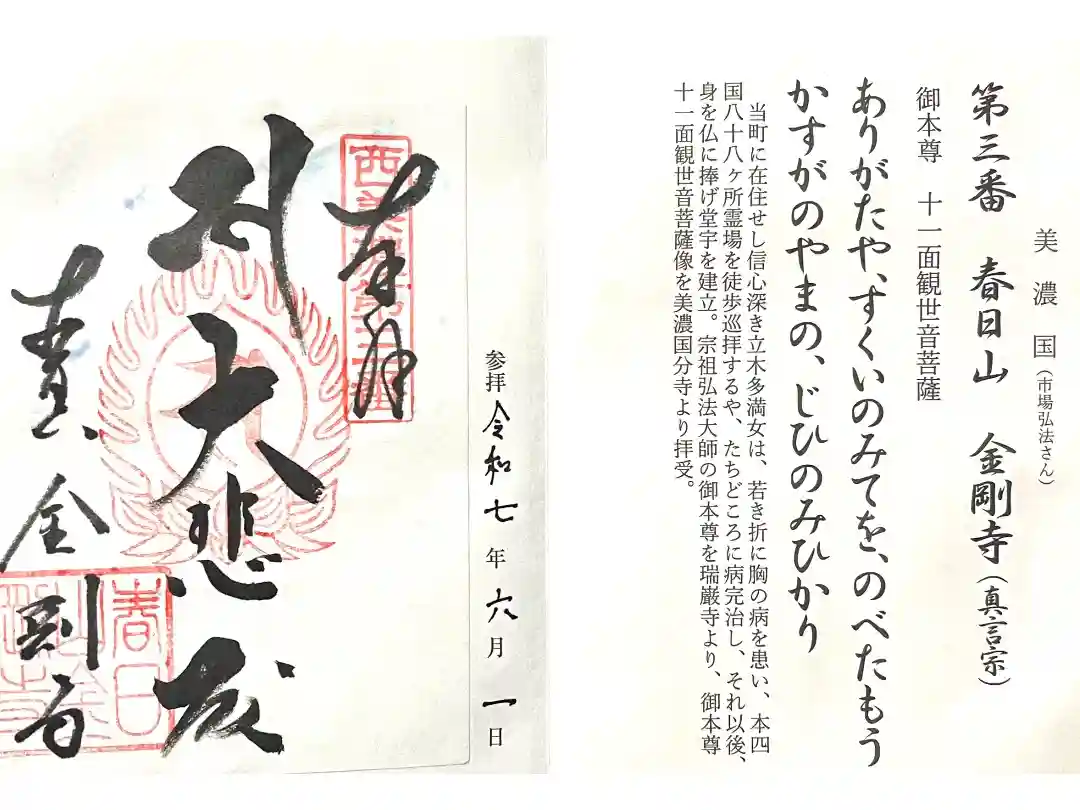 美濃国(市場弘法さん)
第三番 春日山 金剛寺(真言宗)
御本尊 十一面観世音菩薩
ありがたや、すくいのみてを、のべたもう
かすがのやまの、じひのみひかり
当町に在住せし信心深き立木多満女は、若き折に胸の病を患い、本四
国八十八ヶ所霊場を徒歩巡拝するや、たちどころに病完治し、それ以後、
身を仏に捧げ堂宇を建立。宗祖弘法大師の御本尊を瑞巌寺より、御本尊
十一面観世音菩薩像を美濃国分寺より拝受。
参拝令和七年六月一日
奉拝
大悲殿
金剛寺
春日